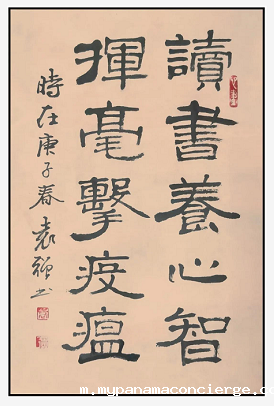 讀書養心智
揮毫擊疫瘟
時在庚子春袁禪书
m.mypanamaconcierge.com